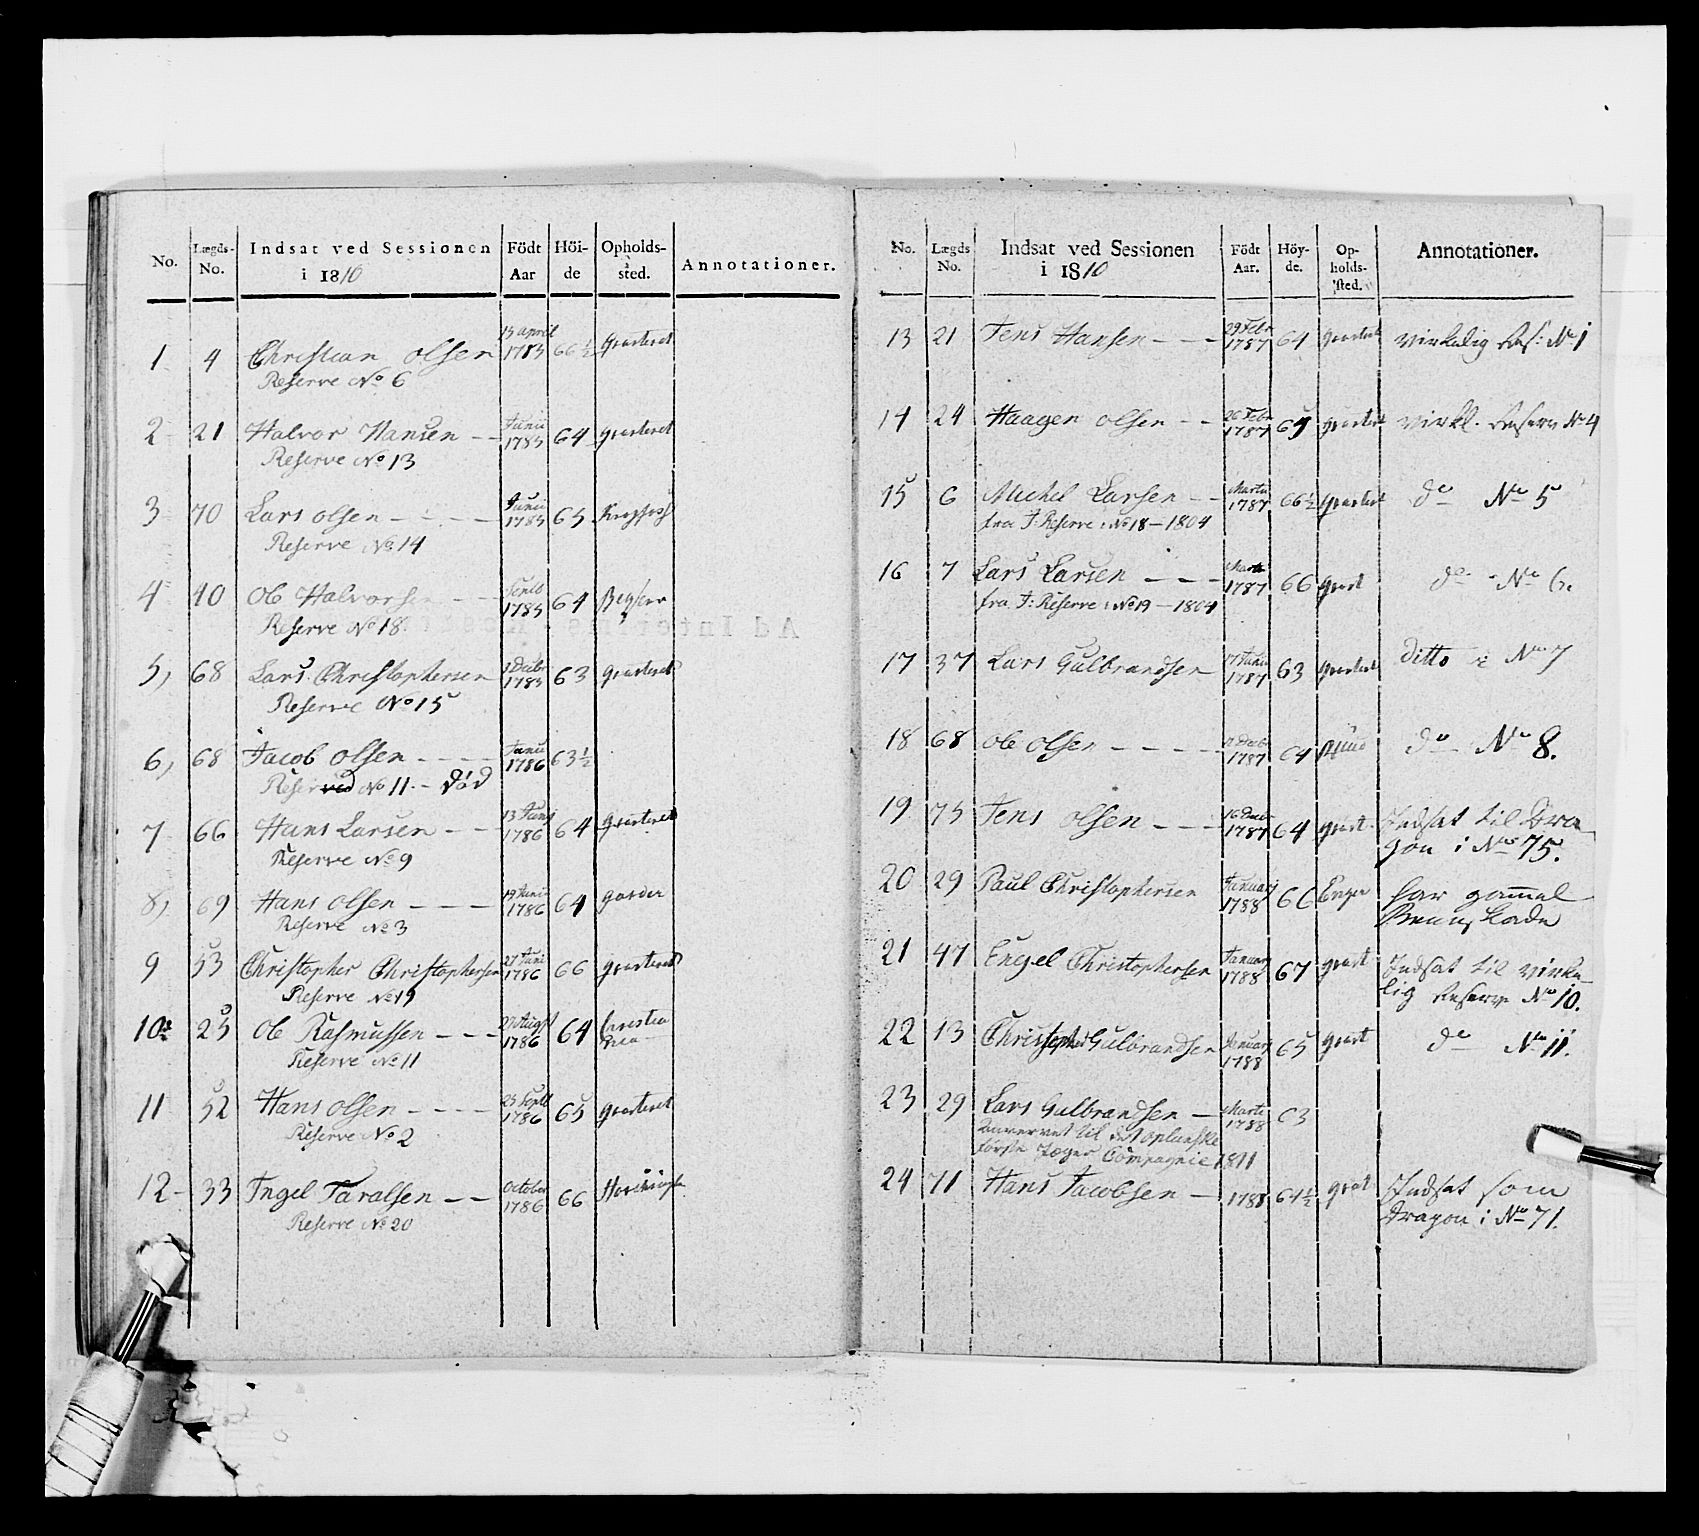 No. Lægds-No. Indsat ved Sessionen i 1810 Födt Aar Höi-de Opholds-sted. Annotationer.
1 4 Christian Olsen 15 april 1785 66½ Grasteret
Reserve No 6
2 21 Halvor Hansen - - Junii 1785 64 grasteret
Reserve No 13
3 70 Lars Olsen - - - - Junii 1785 65
Reserve No 14
4 40 Ole Halvorsen - - 1785 64
Reserve No 18
5, 68 Lars Christophersen 1785 63 grasteret
Reserve No 15
6, 68 Jacob Olsen - - - - Junii 1786 63½
Reserved No 11. - Död
7 66 Hans Larsen - - 1786 64 Grasteret
Reserve No 9
8, 69 Hans Olsen - - - 19 Junii 1786 64 garder
Reserve No 3
9 53 Christopher Christophersen 27 Juni 1786 66 grasteret
Reserve No 19
10 25 Ole Rasmussen - - - 27 Augst 1786 64 Christia
Reserve No 11
11 52 Hans Olsen - - - - 25 Septb 1786 65 grasteret
Reserve No 2
12 - 33 Engel Taralsen - - October 1786 66
Reserve No 20
No. Lægds No. Indsat ved Sessionen i 1810 Födt Aar. Höy-de. Op-holds-sted. Annotationer.
13 21 Jens Hansen - - - 29 Febr 1787 64 grasteret virkelig Res: No 1
14 24 Haagen Olsen - - 26 Febr 1787 65 grasteret virkl. Reserv No 4
15 6 Michel Larsen - - Martii 1787 66½ Grasteret do No 5
fra I: Reserve: No 18 - 1804
16 7 Lars Larsen - - - Marti 1787 66 grast do No 6.
fra I: Reserve: No 19 - 1804
17 37 Lars Gulbrandsen 1787 63 grasteret Ditto No 7
18 68 Ole Olsen - - - - 1787 64 do No 8.
19 75 Jens Olsen - - - 16 1787 64 grast Indsat til Dra
gon i No 75.
20 29 Paul Christophersen Januarj 1788 66 har gammel
Beenskade
21 47 Engel Christophersen Januarj 1788 67 grast Indsat til virke
lig Reserve No 10.
22 13 Christopher Gulbrandsen Januarj 1788 65 grast do No 11.
23 29 Lars Gulbrandsen - Marti 1788 63
til det oplandske
første Jæger Compagnie 1811
24 71 Hans Jacobsen - 1788 64½ grast Indsat som
Dragon i No 71.